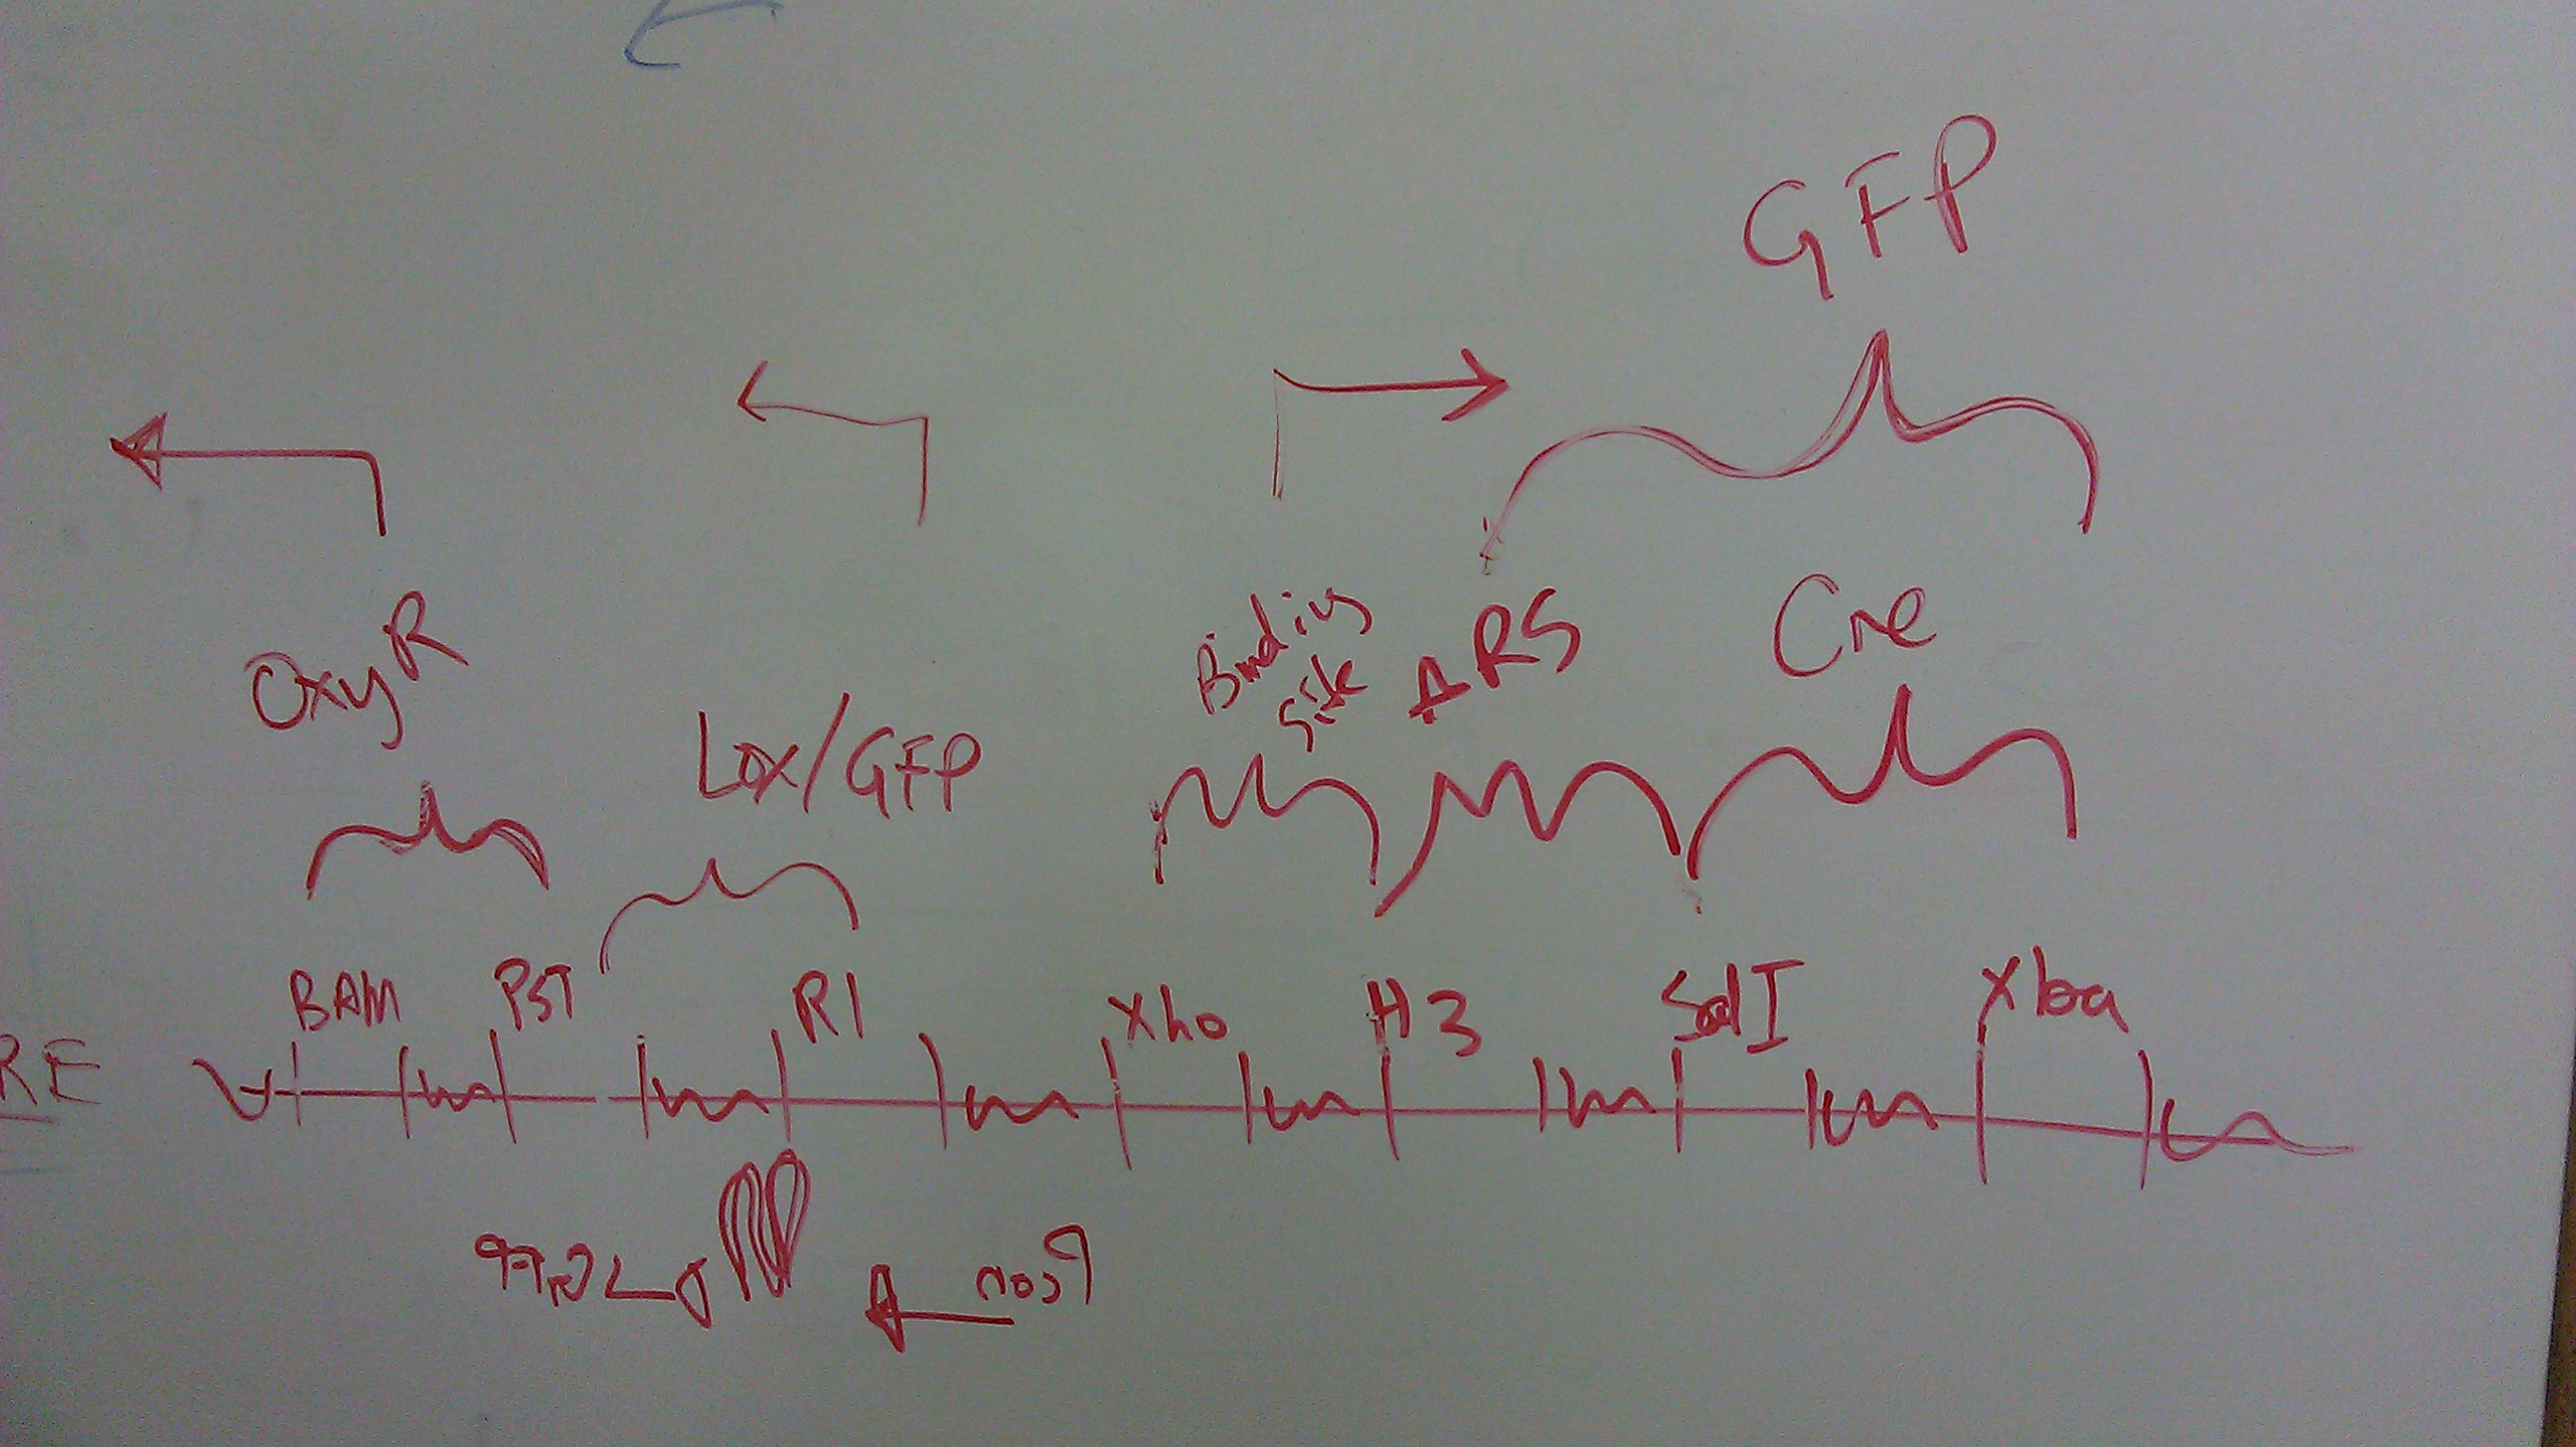 GFP
OxyR
Lox/GFP
Binding
site
ARS
Cre
BAM PST R1 Xho H3 SalI Xba
RE